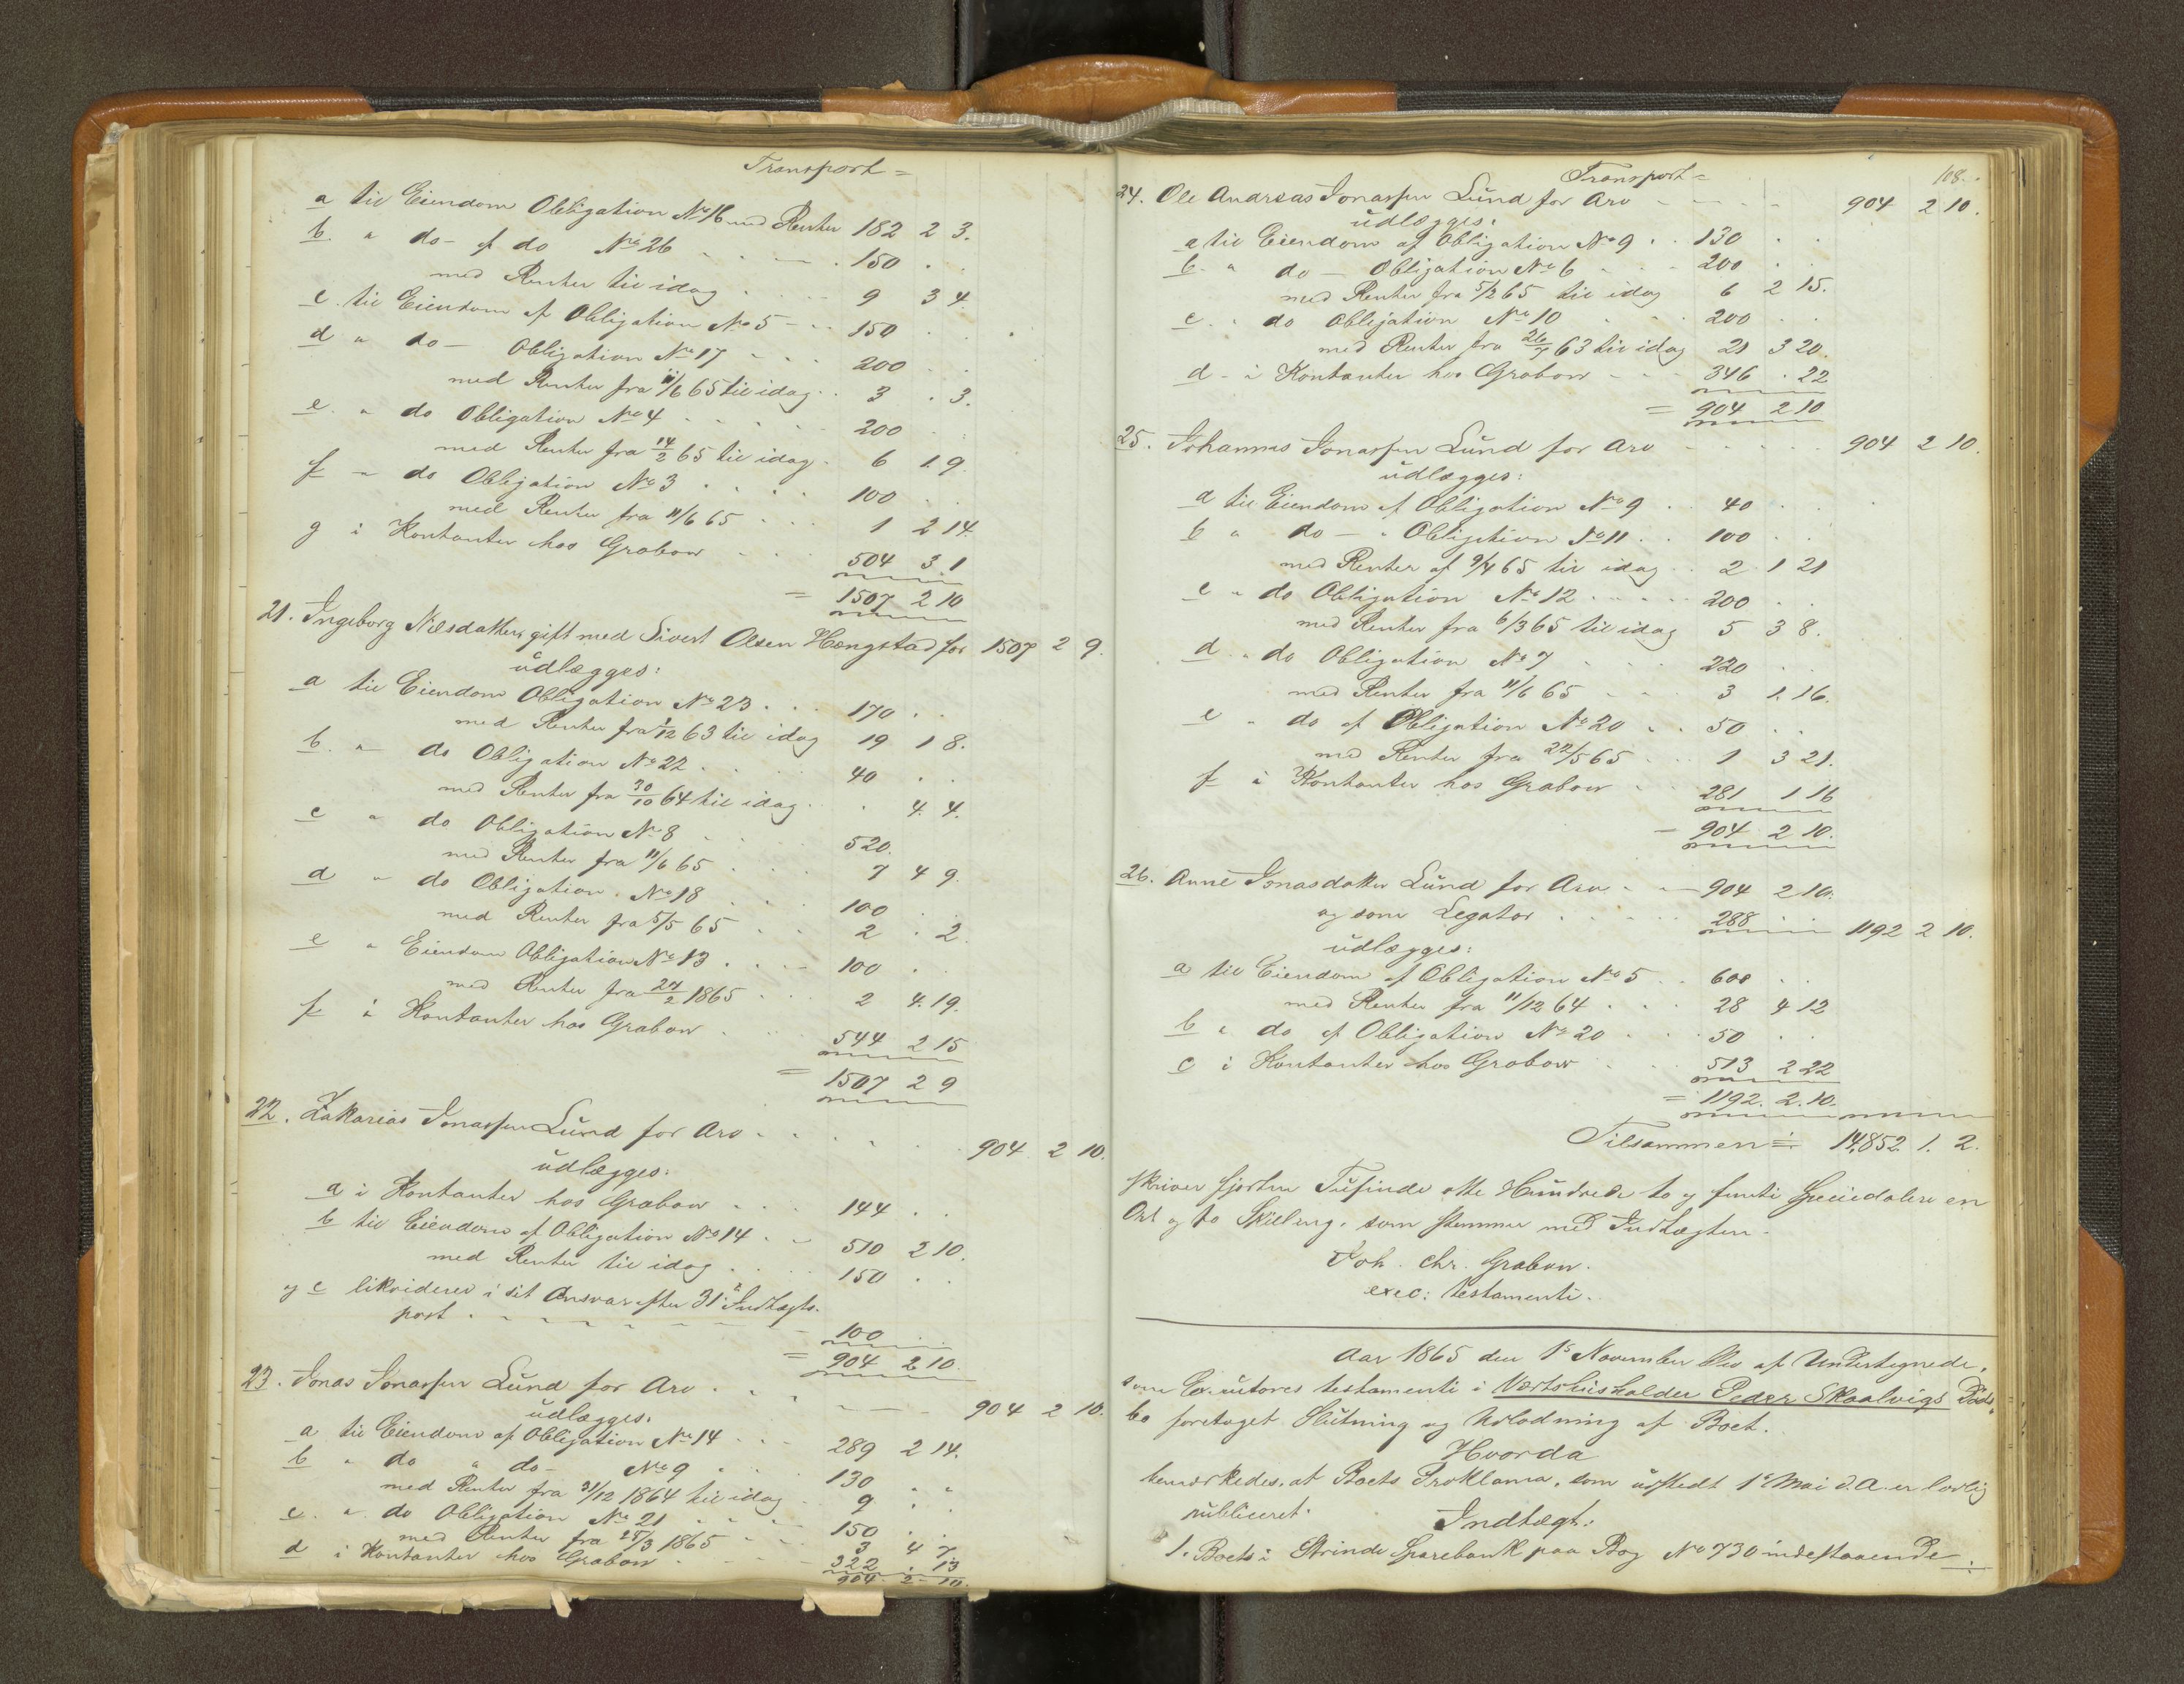 Transport =
a til Eiendom Obligation No 16 med Renter 182 2 3.
b. " do - af do No 26 150 . .
med Renter til idag 9 3 4.
c. til Eiendom af Obligation No 5 150 . .
d " do - Obligation No 17 200 . .
med Renter fra 11/6 65 til idag 3 . 3.
e. " do Obligation No 4 200 . .
med Renter fra 14/2 65 til idag 6 1 9.
f " do Obligation No 3 100 . .
med Renter fra 11/6 65 1 2 14.
g i Kontanter hos Grabow 504 3 1
= 1507 2 10
21. Ingeborg Nilsdatter, gift med Sivert Olsen Hængstad for 1507 2 9.
udlægges:
a til Eiendom Obligation No 23 170 . .
med Renter fra 1/12 63 til idag 19 1 8.
b. " do Obligation No 22 40 . .
med Renter fra 30/10 64 til idag . 4. 4.
c " do Obligation No 8 520.
med Renter fra 11/6 65 7 4 9.
d " do Obligation No 18 100 . .
med Renter fra 5/5 65 2 . 2.
e " Eiendom Obligation No 13 100 . .
med Renter fra 24/2 1865 2 4 19.
f i Kontanter hos Grabow 544 2 15
= 1507 2 9
22. Zakarias Jonassen Lund for Arv 904 2 10.
udlægges:
a i Kontanter hos Grabow 144 . .
b til Eiendom af Obligation No 14 510 2 10.
med Renter til idag 150 . .
og c likviderer i sit Ansvar efter 31te Indtægts-
post 100
= 904 2 10.
23. Jonas Jonassen Lund for Arv 904 2 10.
udlægges.
a til Eiendom af Obligation No 14 289 2 14.
b " do " do - No 9 130 " "
med Renter fra 31/12 1864 til idag 9 . .
c. " do Obligation No 21 150 . .
med Renter fra 25/3 1865 3 4 7
d i Kontanter hos Grabow 322 . 13
904 2 10.
108.
Transport =
24. Ole Andreas Jonassen Lund for Arv 904 2 10.
udlægges.
a til Eiendom af Obligation No 9 130 . .
b. " do - Obligation No 6 200 . .
med Renter fra 5/2 65 til idag 6 2 15.
c. " do Obligation No 10 200 . .
med Renter fra 26/7 63 til idag 21 3 20.
d - i Kontanter hos Grabow 346 . 22
= 904 2 10
25. Johannes Jonassen Lund for Arv 904 2 10.
udlægges:
a til Eiendom af Obligation No 9 40 . .
b " do - " Obligation No 11 100 . .
med Renter af 9/4 65 til idag 2 1 21
c " do Obligation No 12 200 . .
med Renter fra 6/3 65 til idag 5 3 8.
d. " do Obligation No 7 220 . .
med Renter fra 11/6 65 3 1. 16.
e " do af Obligation No 20 50 . .
med Renter fra 22/5 65 1 3 21.
f i Kontanter hos Grabow 281 1 16
= 904 2 10.
26. Anne Jonasdatter Lund for Arv 904 2 10.
og som Legator 288 1192 2 10.
udlægges:
a til Eiendom af Obligation No 5 600 . .
med Renter fra 11/12 64 28 4 12
b " do af Obligation No 20 50 . .
c i Kontanter hos Grabow 513 2 22
= 1192. 2. 10.
Tilsammen = 14,852. 1. 2.
skriver fjorten Tusinde otte Hundrede to og femti Speciedaler en
Ort og to Skilling, som stemmer med Indtægten.
Joh. Chr. Grabow.
exec: testamenti.
Aar 1865 den 1s November blev af Undertegnede,
som Executores testamenti i Værtshusholder Peder Skaalvigs Døds-
bo foretaget Slutning og Udlodning af Boet.
Hvorda
bemærkedes, at Boets Proklama, som udstedt 1e Mai d. A. er lovlig
publiceret.
Indtægt:
1. Boets i Strinde Sparebank paa Bog No 730 indestaaende